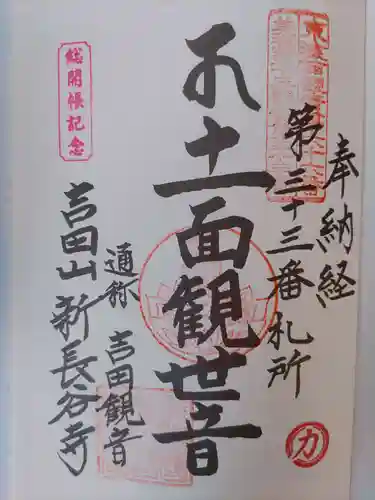 奉納経
第三十三番札所
十一面観世音
通称 吉田観音
吉田山新長谷寺
総開帳記念
カ